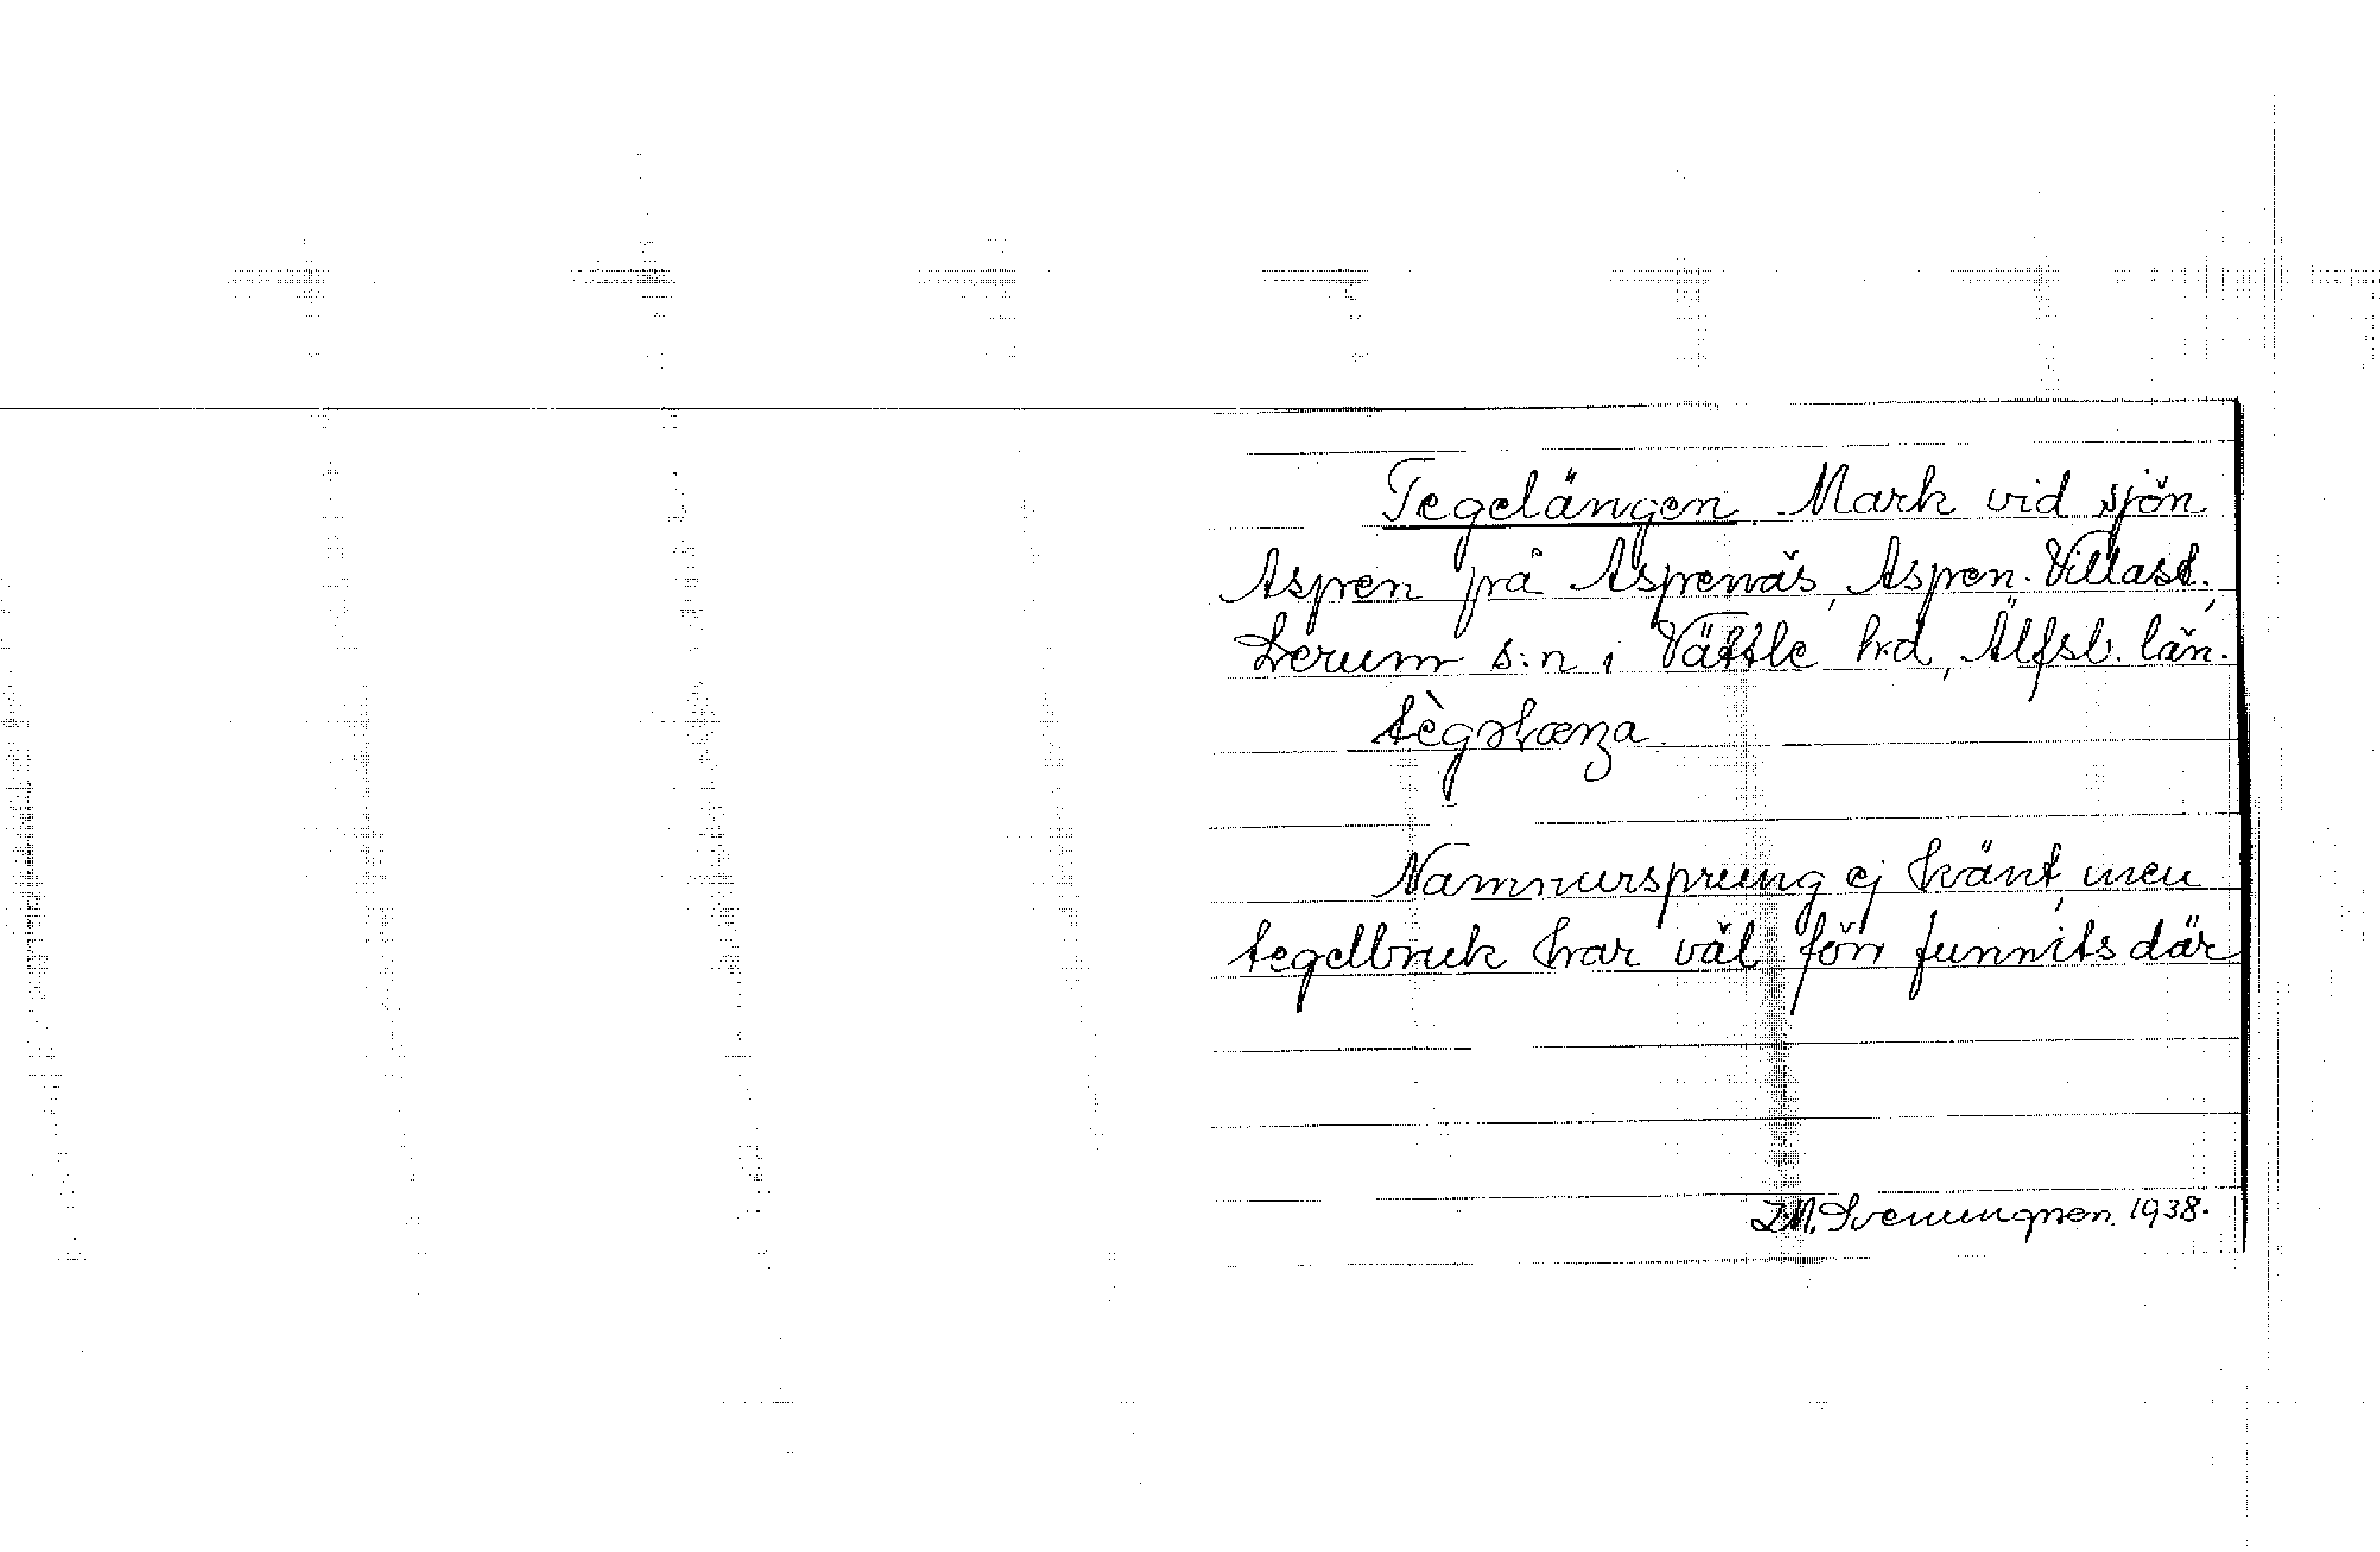 Tegelängen. Mark vid sjön
Aspen på Aspenäs, Aspen. Villast.,
Lerum s:n i Vättle h:d, Älfsb. län.
Namnursprung ej känt, men
tegelbruk har väl förr funnits där
Svenungsson. 1938.